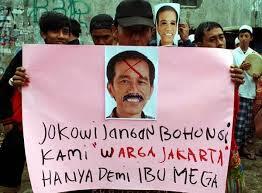 JOKOWI JANGAN BOHONGi
KAMI "WARGA JAKARTA"
HANYA DEMI IBU MEGA